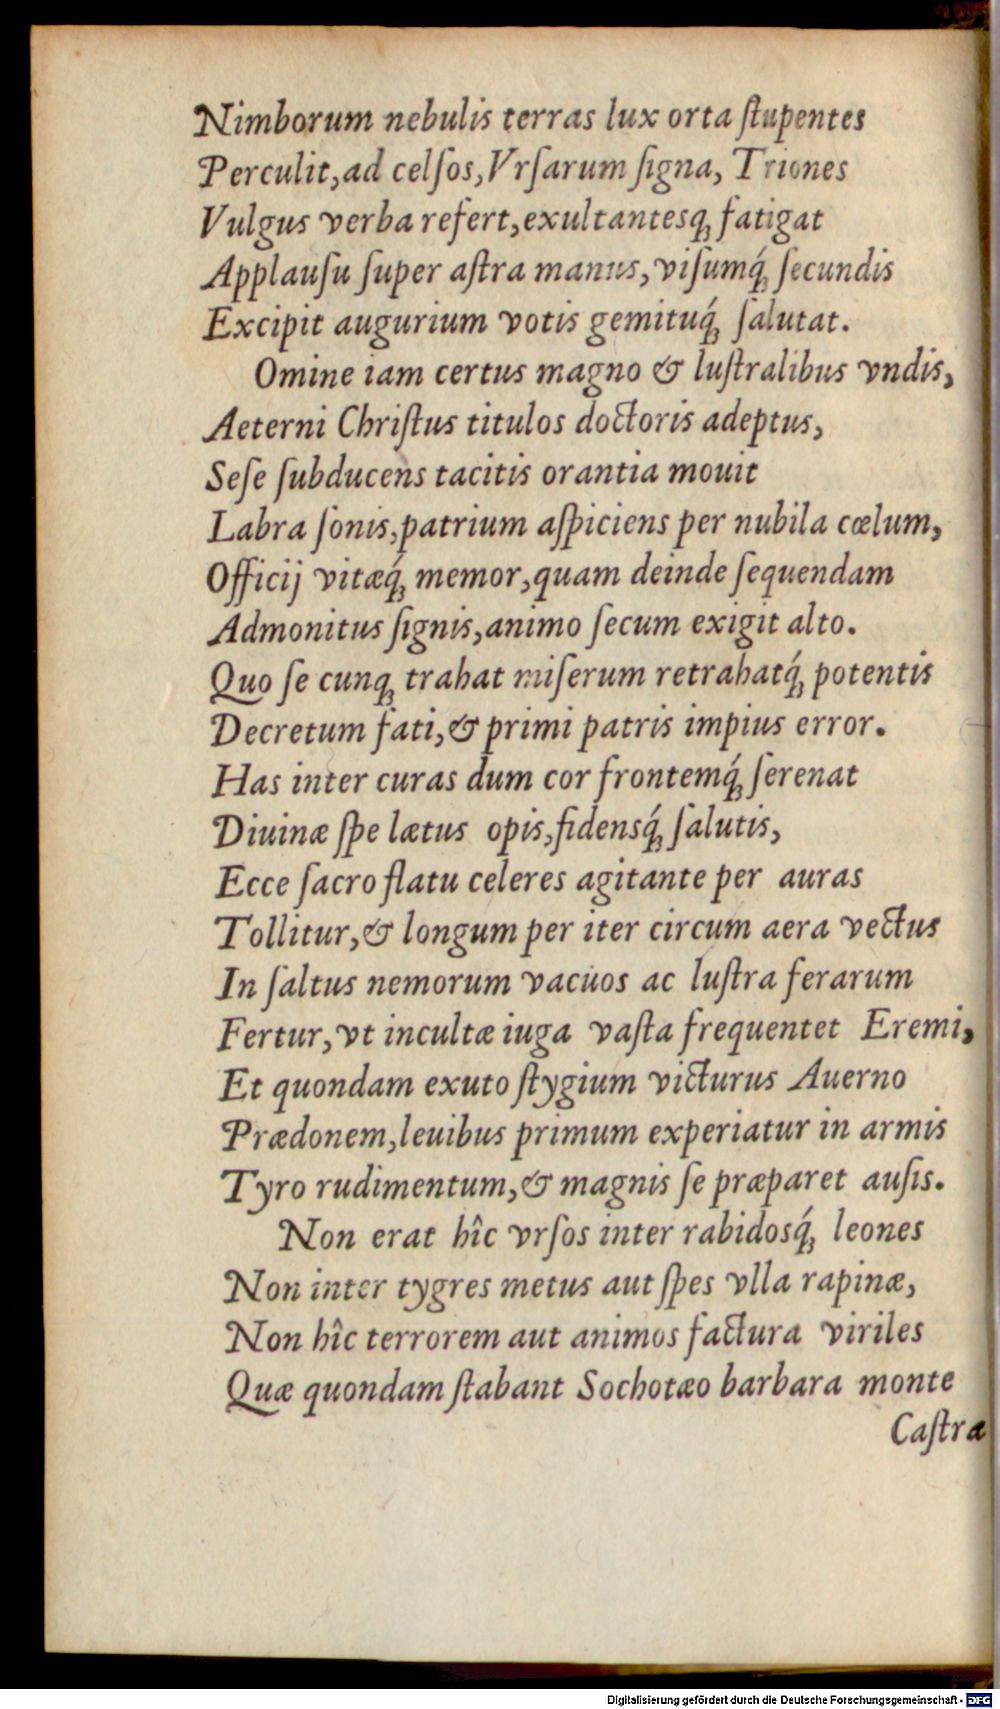 Nimborum nebulis terras lux orta ſtupentes
Perculit, ad celſos, Vrſarum ſigna, Triones
Vulgus verba refert, exultantesq; fatigat
Applauſu ſuper aſtra manus, viſumq́; ſecundis
Excipit augurium votis gemituq́; ſalutat.
Omine iam certus magno & luſtralibus vndis,
Aeterni Chriſtus titulos doctoris adeptus,
Seſe ſubducens tacitis orantia mouit
Labra ſonis, patrium aſpiciens per nubila cœlum,
Officij vitæq́; memor, quam deinde ſequendam
Admonitus ſignis, animo ſecum exigit alto.
Quo ſe cunq; trahat miſerum retrahatq́; potentis
Decretum fati, & primi patris impius error.
Has inter curas dum cor frontemq́; ſerenat
Diuinæ ſpe lætus opis, fidensq́; ſalutis,
Ecce ſacro flatu celeres agitante per auras
Tollitur, & longum per iter circum aera vectus
In ſaltus nemorum vacuos ac luſtra ferarum
Fertur, vt incultæ iuga vaſta frequentet Eremi,
Et quondam exuto ſtygium victurus Auerno
Prædonem, leuibus primum experiatur in armis
Tyro rudimentum, & magnis ſe præparet auſis.
Non erat hîc vrſos inter rabidosq́; leones
Non inter tygres metus aut ſpes vlla rapinæ,
Non hîc terrorem aut animos factura viriles
Quæ quondam ſtabant Sochotæo barbara monte
Caſtra
Digitalisierung gefördert durch die Deutsche Forschungsgemeinschaft - DFG